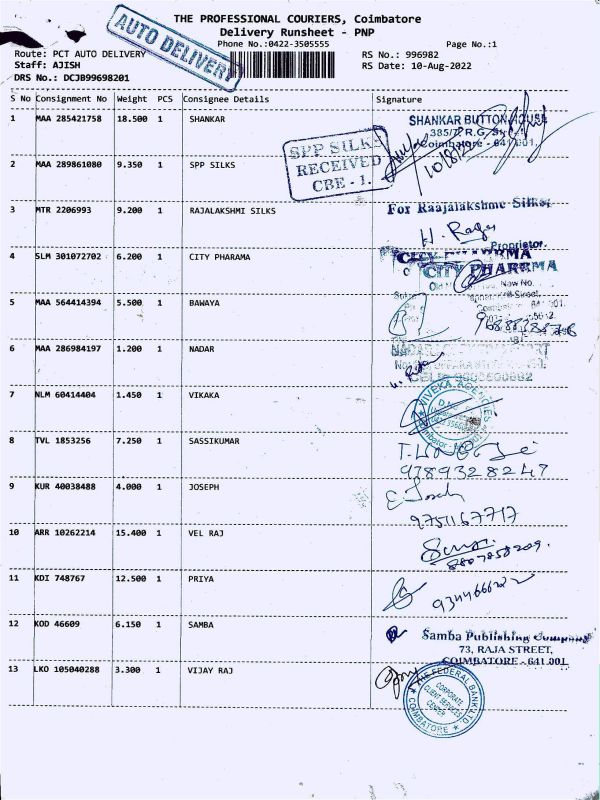 THE PROFESSIONAL COURIERS, Coimbatore
Delivery Runsheet - PNP
Phone No.:0422-3505555
Page No.:1
AUTO DELIVERY
Route: PCT AUTO DELIVERY
RS No.: 996982
Staff: AJISH
RS Date: 10-Aug-2022
DRS No.: DCJB99698201
S No Consignment No Weight PCS Consignee Details Signature
1 MAA 285421758 18.500 1 SHANKAR
SHANKAR BUTTON HOUSE
385/7, R.G.
Coimbatore - 641 001.
10/8/22
2 MAA 289861080 9.350 1 SPP SILKS
SPP SILKS
RECEIVED
CBE - 1.
3 MTR 2206993 9.200 1 RAJALAKSHMI SILKS
For Raajalakshme Silks
Proprietor.
4 SLM 301072702 6.200 1 CITY PHARAMA
CITY PHARRMA
CITY PHARRMA
Now No.
5 MAA 564414394 5.500 1 BAWAYA
6 MAA 286984197 1.200 1 NADAR
7 NLM 60414404 1.450 1 VIKAKA
VIVEKA AGENCIES
8 TVL 1853256 7.250 1 SASSIKUMAR
9789328247
9 KUR 40038488 4.000 1 JOSEPH
9751167717
10 ARR 10262214 15.400 1 VEL RAJ
11 KDI 748767 12.500 1 PRIYA
12 KOD 46609 6.150 1 SAMBA
Samba Publishing Company
73, RAJA STREET,
COIMBATORE - 641 001
13 LKO 105040288 3.300 1 VIJAY RAJ
THE FEDERAL BANK LTD.
CORPORATE
CLIENT SERVICES
CENTER
COIMBATORE